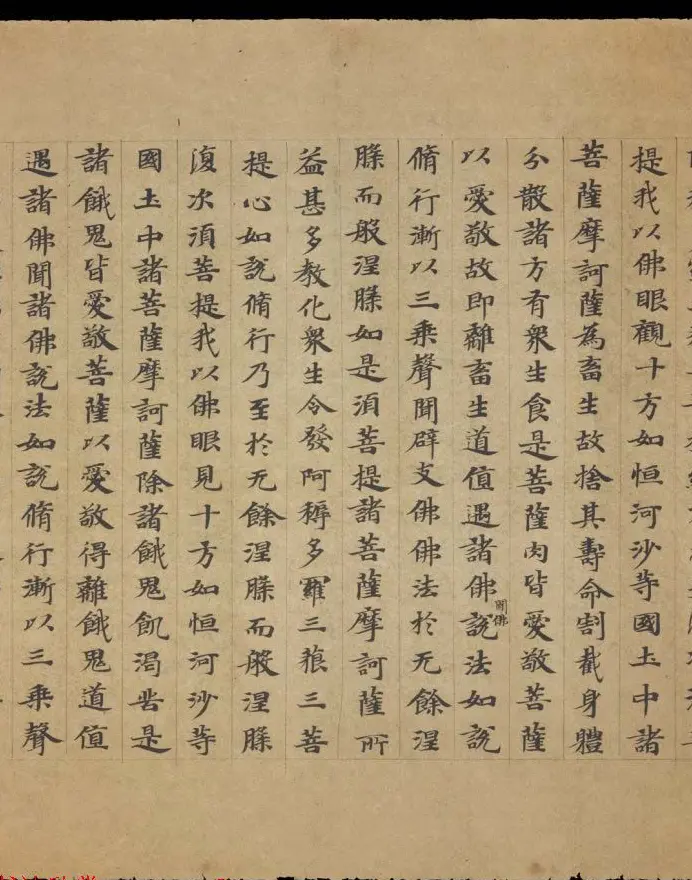 提我以佛眼觀十方如恒河沙等國土中諸
菩薩摩訶薩為畜生故捨其壽命割截身體
分散諸方有眾生食是菩薩肉皆愛敬菩薩
以愛敬故即離畜生道值遇諸佛聞佛說法如說
脩行漸以三乘聲聞辟支佛佛法於无餘涅
槃而般涅槃如是須菩提諸菩薩摩訶薩所
益甚多教化眾生令發阿耨多羅三藐三菩
提心如說脩行乃至於无餘涅槃而般涅槃
復次須菩提我以佛眼見十方如恒河沙等
國土中諸菩薩摩訶薩除諸餓鬼飢渴苦是
諸餓鬼皆愛敬菩薩以愛敬得離餓鬼道值
遇諸佛聞諸佛說法如說脩行漸以三乘聲